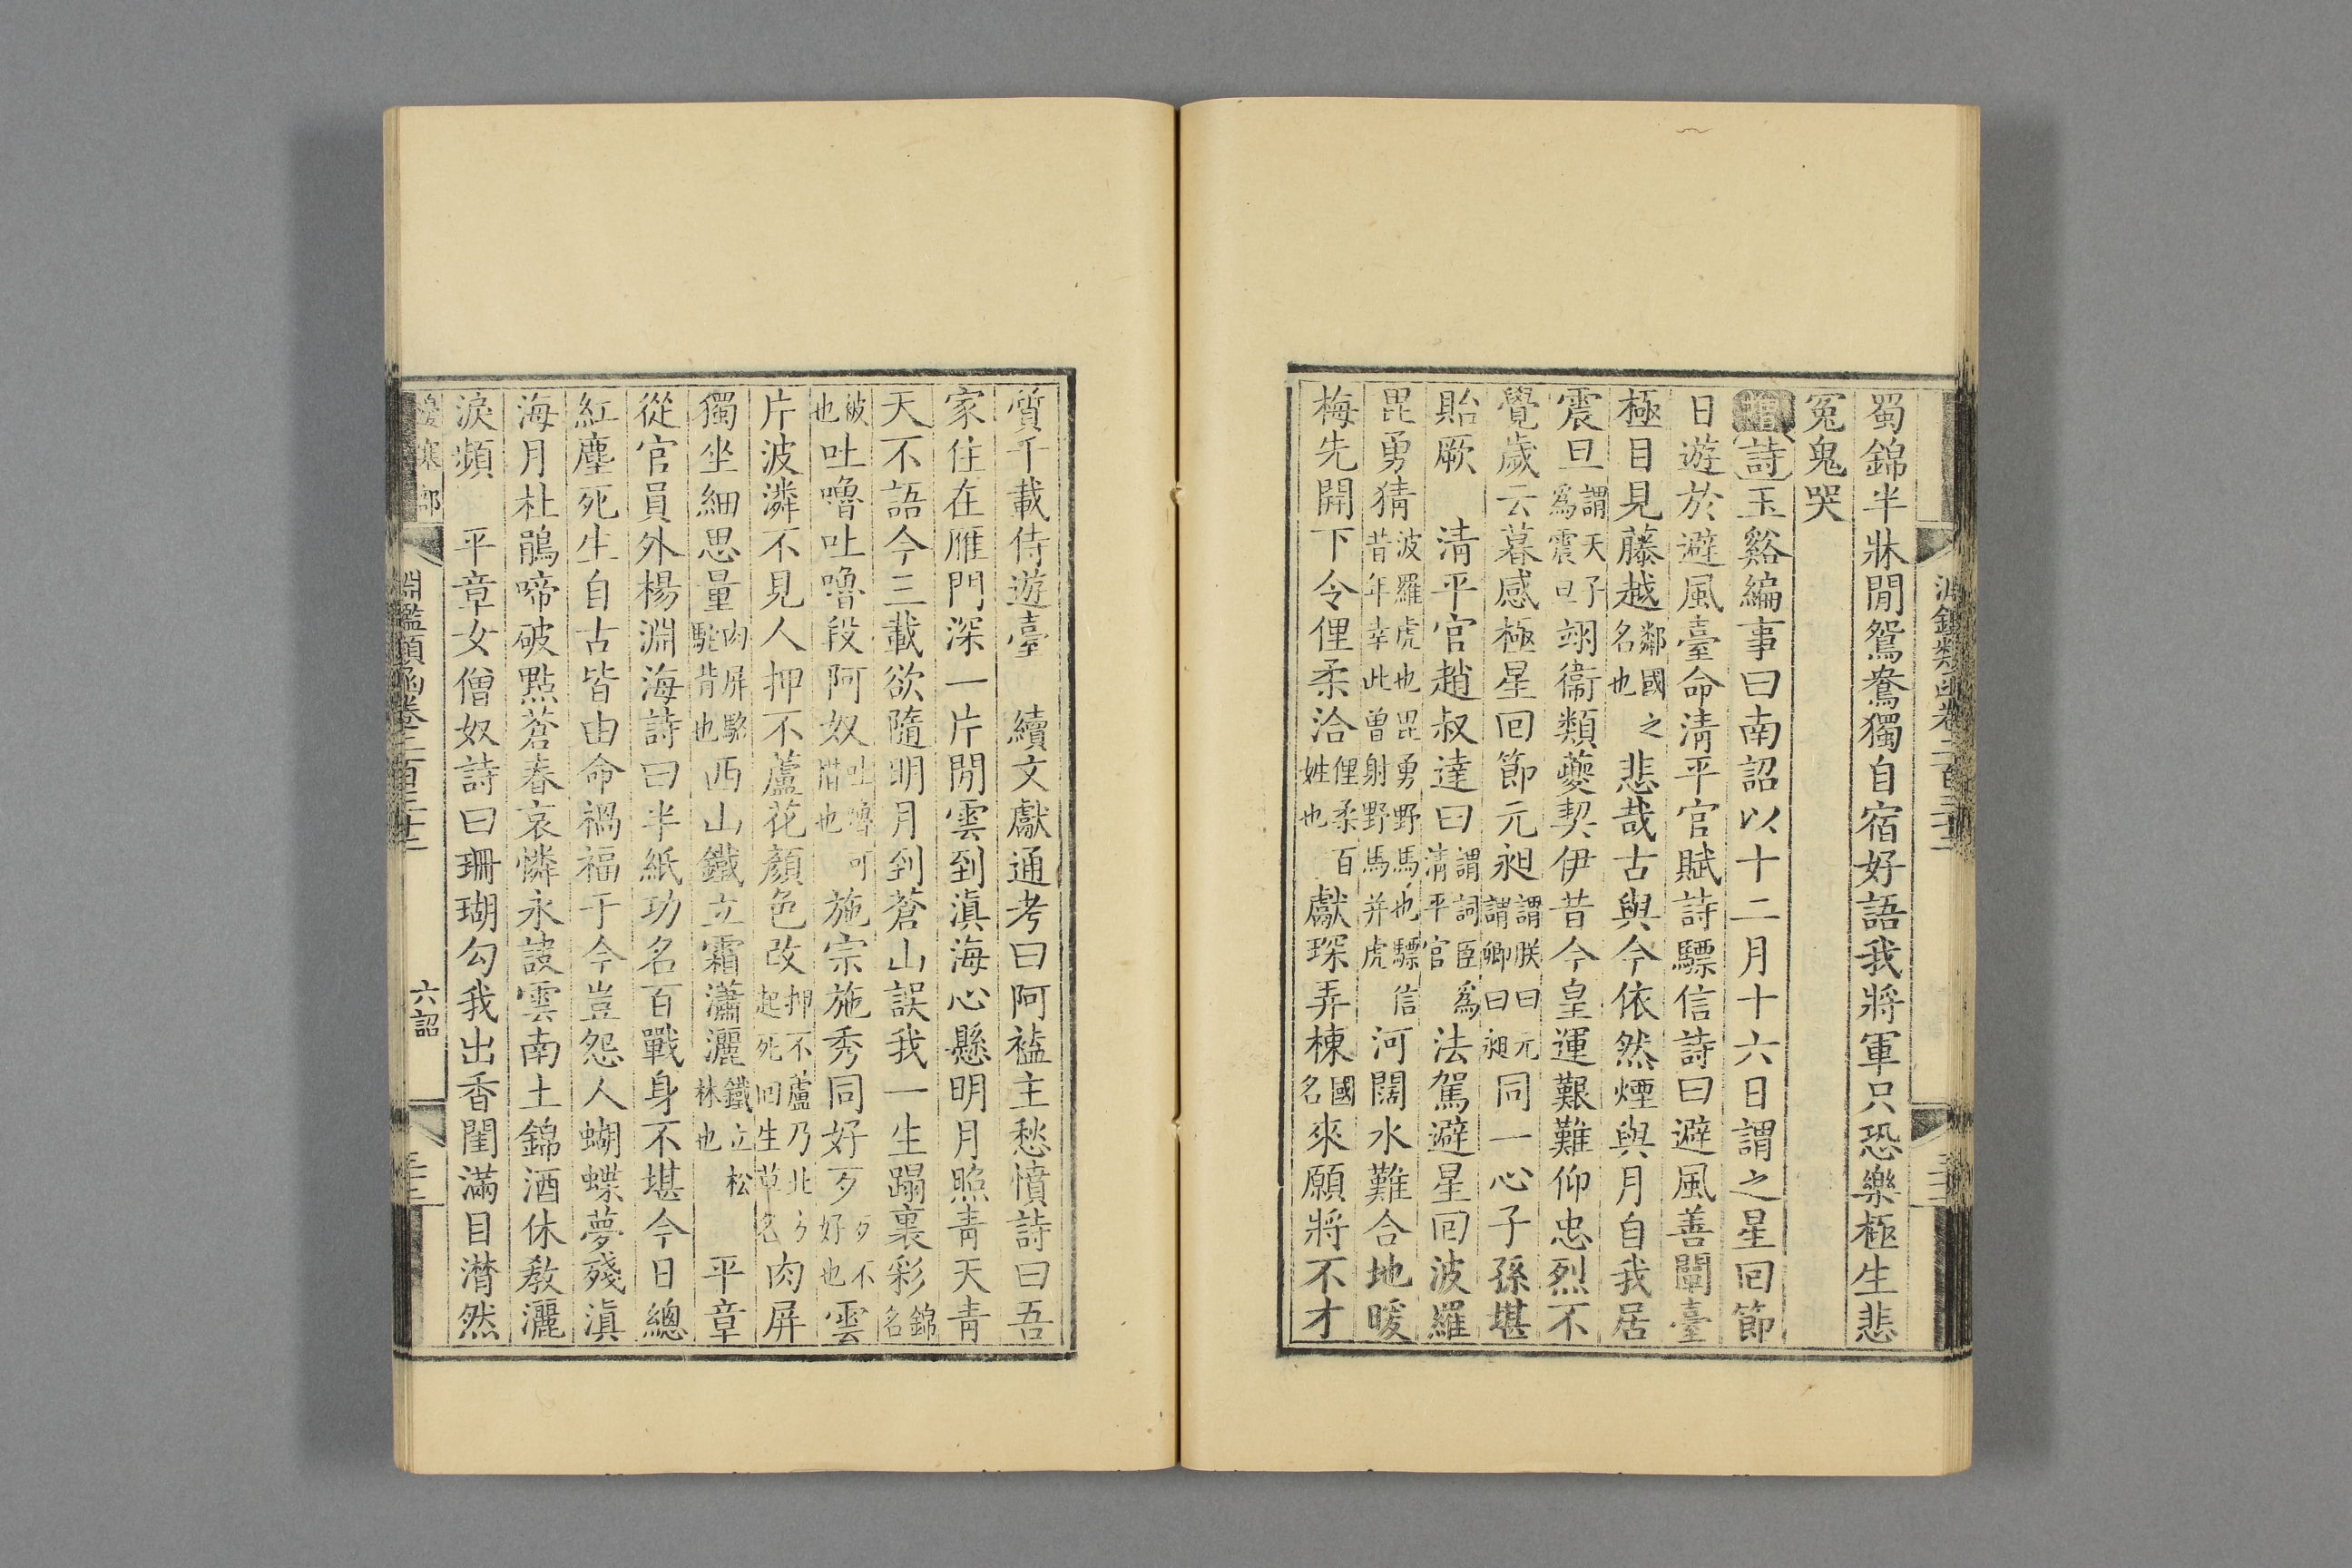 蜀錦半牀閒鴛鴦獨自宿好語我將軍只恐樂極生悲
冤鬼哭
增詩玉谿編事曰南詔以十二月十六日謂之星回節
日遊於避風臺命清平官賦詩驃信詩曰避風善闡臺
極目見藤越鄰國之名也悲哉古與今依然煙與月自我居
震旦謂天子為震旦翊衞類夔契伊昔今皇運艱難仰忠烈不
覺歲云暮感極星回節元昶謂朕曰元謂卿曰昶同一心子孫堪
貽厥　清平官趙叔達曰謂詞臣為清平官法駕避星回波羅
毘勇猜波羅虎也毘勇野馬也驃信昔年幸此曾射野馬并虎河闊水難合地暖
梅先開下令俚柔洽俚柔百姓也獻琛弄棟國名來願將不才
質千載侍遊臺　續文獻通考曰阿䙝主愁憤詩曰吾
家住在雁門深一片閒雲到滇海心懸明月照青天青
天不語今三載欲隨明月到蒼山誤我一生蹋裏彩錦名
被也吐嚕吐嚕段阿奴吐嚕可惜也施宗施秀同好歹歹不好也雲
片波潾不見人押不蘆花顏色改押不蘆乃北方起死回生草名肉屏
獨坐細思量肉屏駱駝背也西山鐵立霜瀟灑鐵立松林也　平章
從官員外楊淵海詩曰半紙功名百戰身不堪今日總
紅塵死生自古皆由命禍福于今豈怨人蝴蝶夢殘滇
海月杜鵑啼破點蒼春哀憐永訣雲南土錦酒休教灑
淚頻　平章女僧奴詩曰珊瑚勾我出香閨滿目潸然
邊塞部
淵鑑類函卷二百三十二
六詔